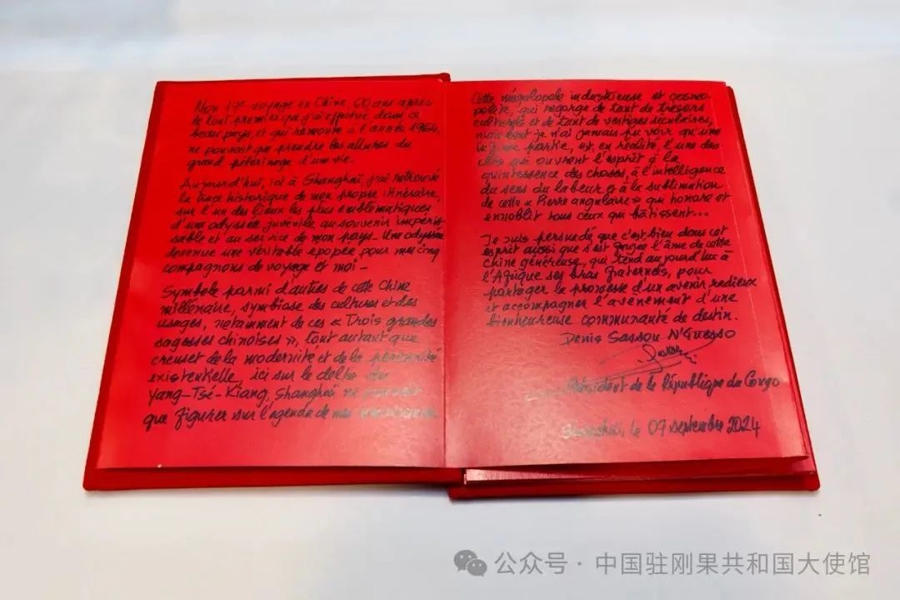 Mon 17e voyage en Chine, 60 ans après
le tout premier que j'ai effectué dans ce
beau pays, et qui remonte à l'année 1964,
ne pouvait que prendre les allures du
grand pèlerinage d'une vie.
Aujourd'hui, ici à Shanghaï, j'ai retrouvé
la trace historique de mon propre itinéraire,
sur l'un des lieux les plus emblématiques
d'une odyssée juvénile au souvenir impéris-
sable et au service de mon pays. Une odyssée
devenue une véritable épopée pour mes cinq
compagnons de voyage et moi-
Symbole parmi d'autres de cette Chine
millénaire, symbiose des cultures et des
usages, notamment de ces « Trois grandes
sagesses chinoises », tout autant que
creuset de la modernité et de la
existentielle, ici sur le delta du
Yang-Tsé-Kiang, Shanghaï ne pouvait
que figurer sur l'agenda de mes
Cette mégalopole industrieuse et cosmo-
polite, qui regorge de tant de trésors
culturels et de tant de vestiges séculaires,
mais dont je n'ai jamais pu voir qu'une
infime partie, est, en réalité, l'une des
clés qui ouvrent l'esprit à la
quintessence des choses, à l'intelligence
du sens du labeur et à la sublimation
de cette « Pierre angulaire » qui honore et
ennoblit tous ceux qui bâtissent...
Je suis persuadé que c'est bien dans cet
esprit aussi que s'est forgée l'âme de cette
Chine généreuse, qui tend aujourd'hui à
l'Afrique ses bras fraternels, pour
partager la promesse d'un avenir radieux
et accompagner l'avènement d'une
bienheureuse communauté de destin.
Denis Sassou N'Guesso
Président de la République du Congo
Shanghaï, le 07 septembre 2024
公众号 · 中国驻刚果共和国大使馆